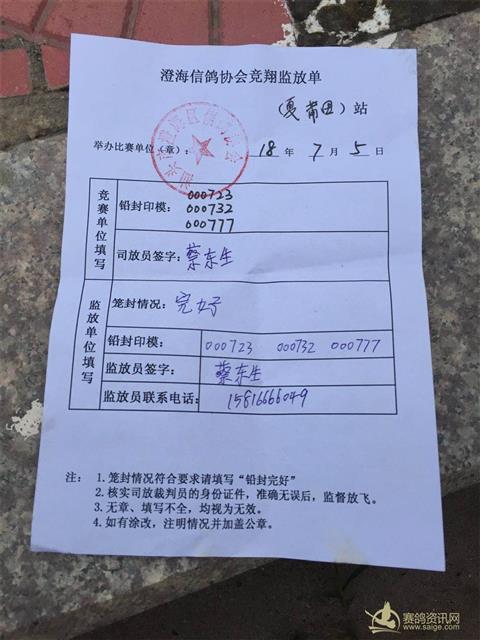 澄海信鸽协会竞翔监放单
(夏莆田)站
举办比赛单位(章): 18年7月5日
竞赛单位填写
铅封印模: 000723
000732
000777
司放员签字: 蔡东生
监放单位填写
笼封情况: 完好
铅封印模: 000723 000732 000777
监放员签字: 蔡东生
监放员联系电话: 15816666049
注: 1.笼封情况符合要求请填写“铅封完好”
2.核实司放裁判员的身份证件,准确无误后,监督放飞。
3.无章、填写不全,均视为无效。
4.如有涂改,注明情况并加盖公章。
赛鸽资讯网
www.saige.com